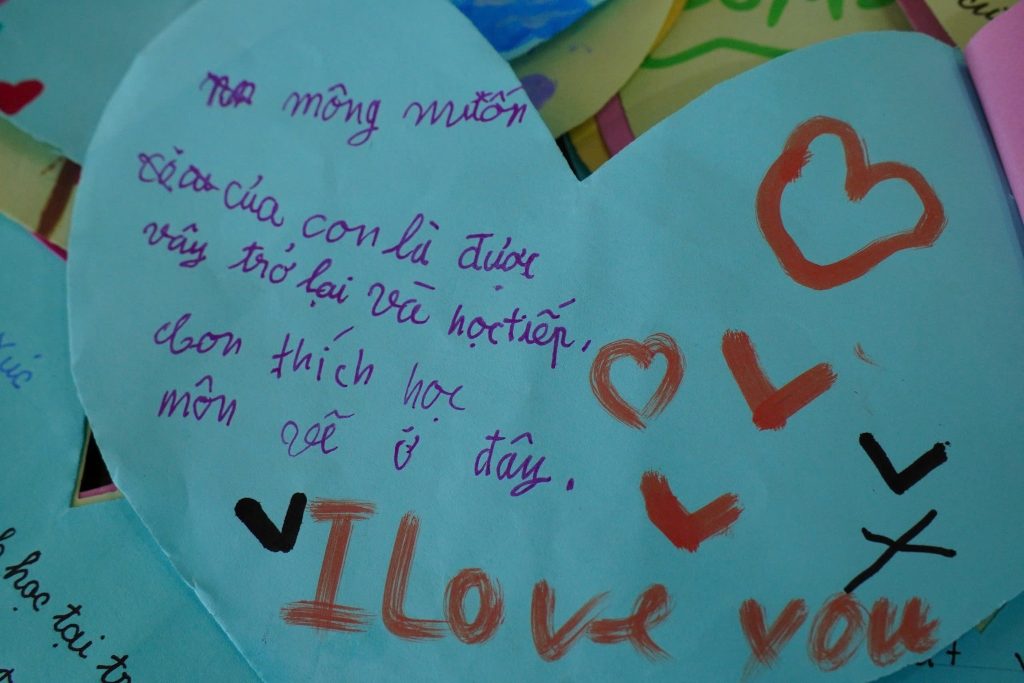 mông muốn
của con là được
vây trở lại và học tiếp.
Con thích học
môn vẽ ở đây.
I Love you
học tại tr